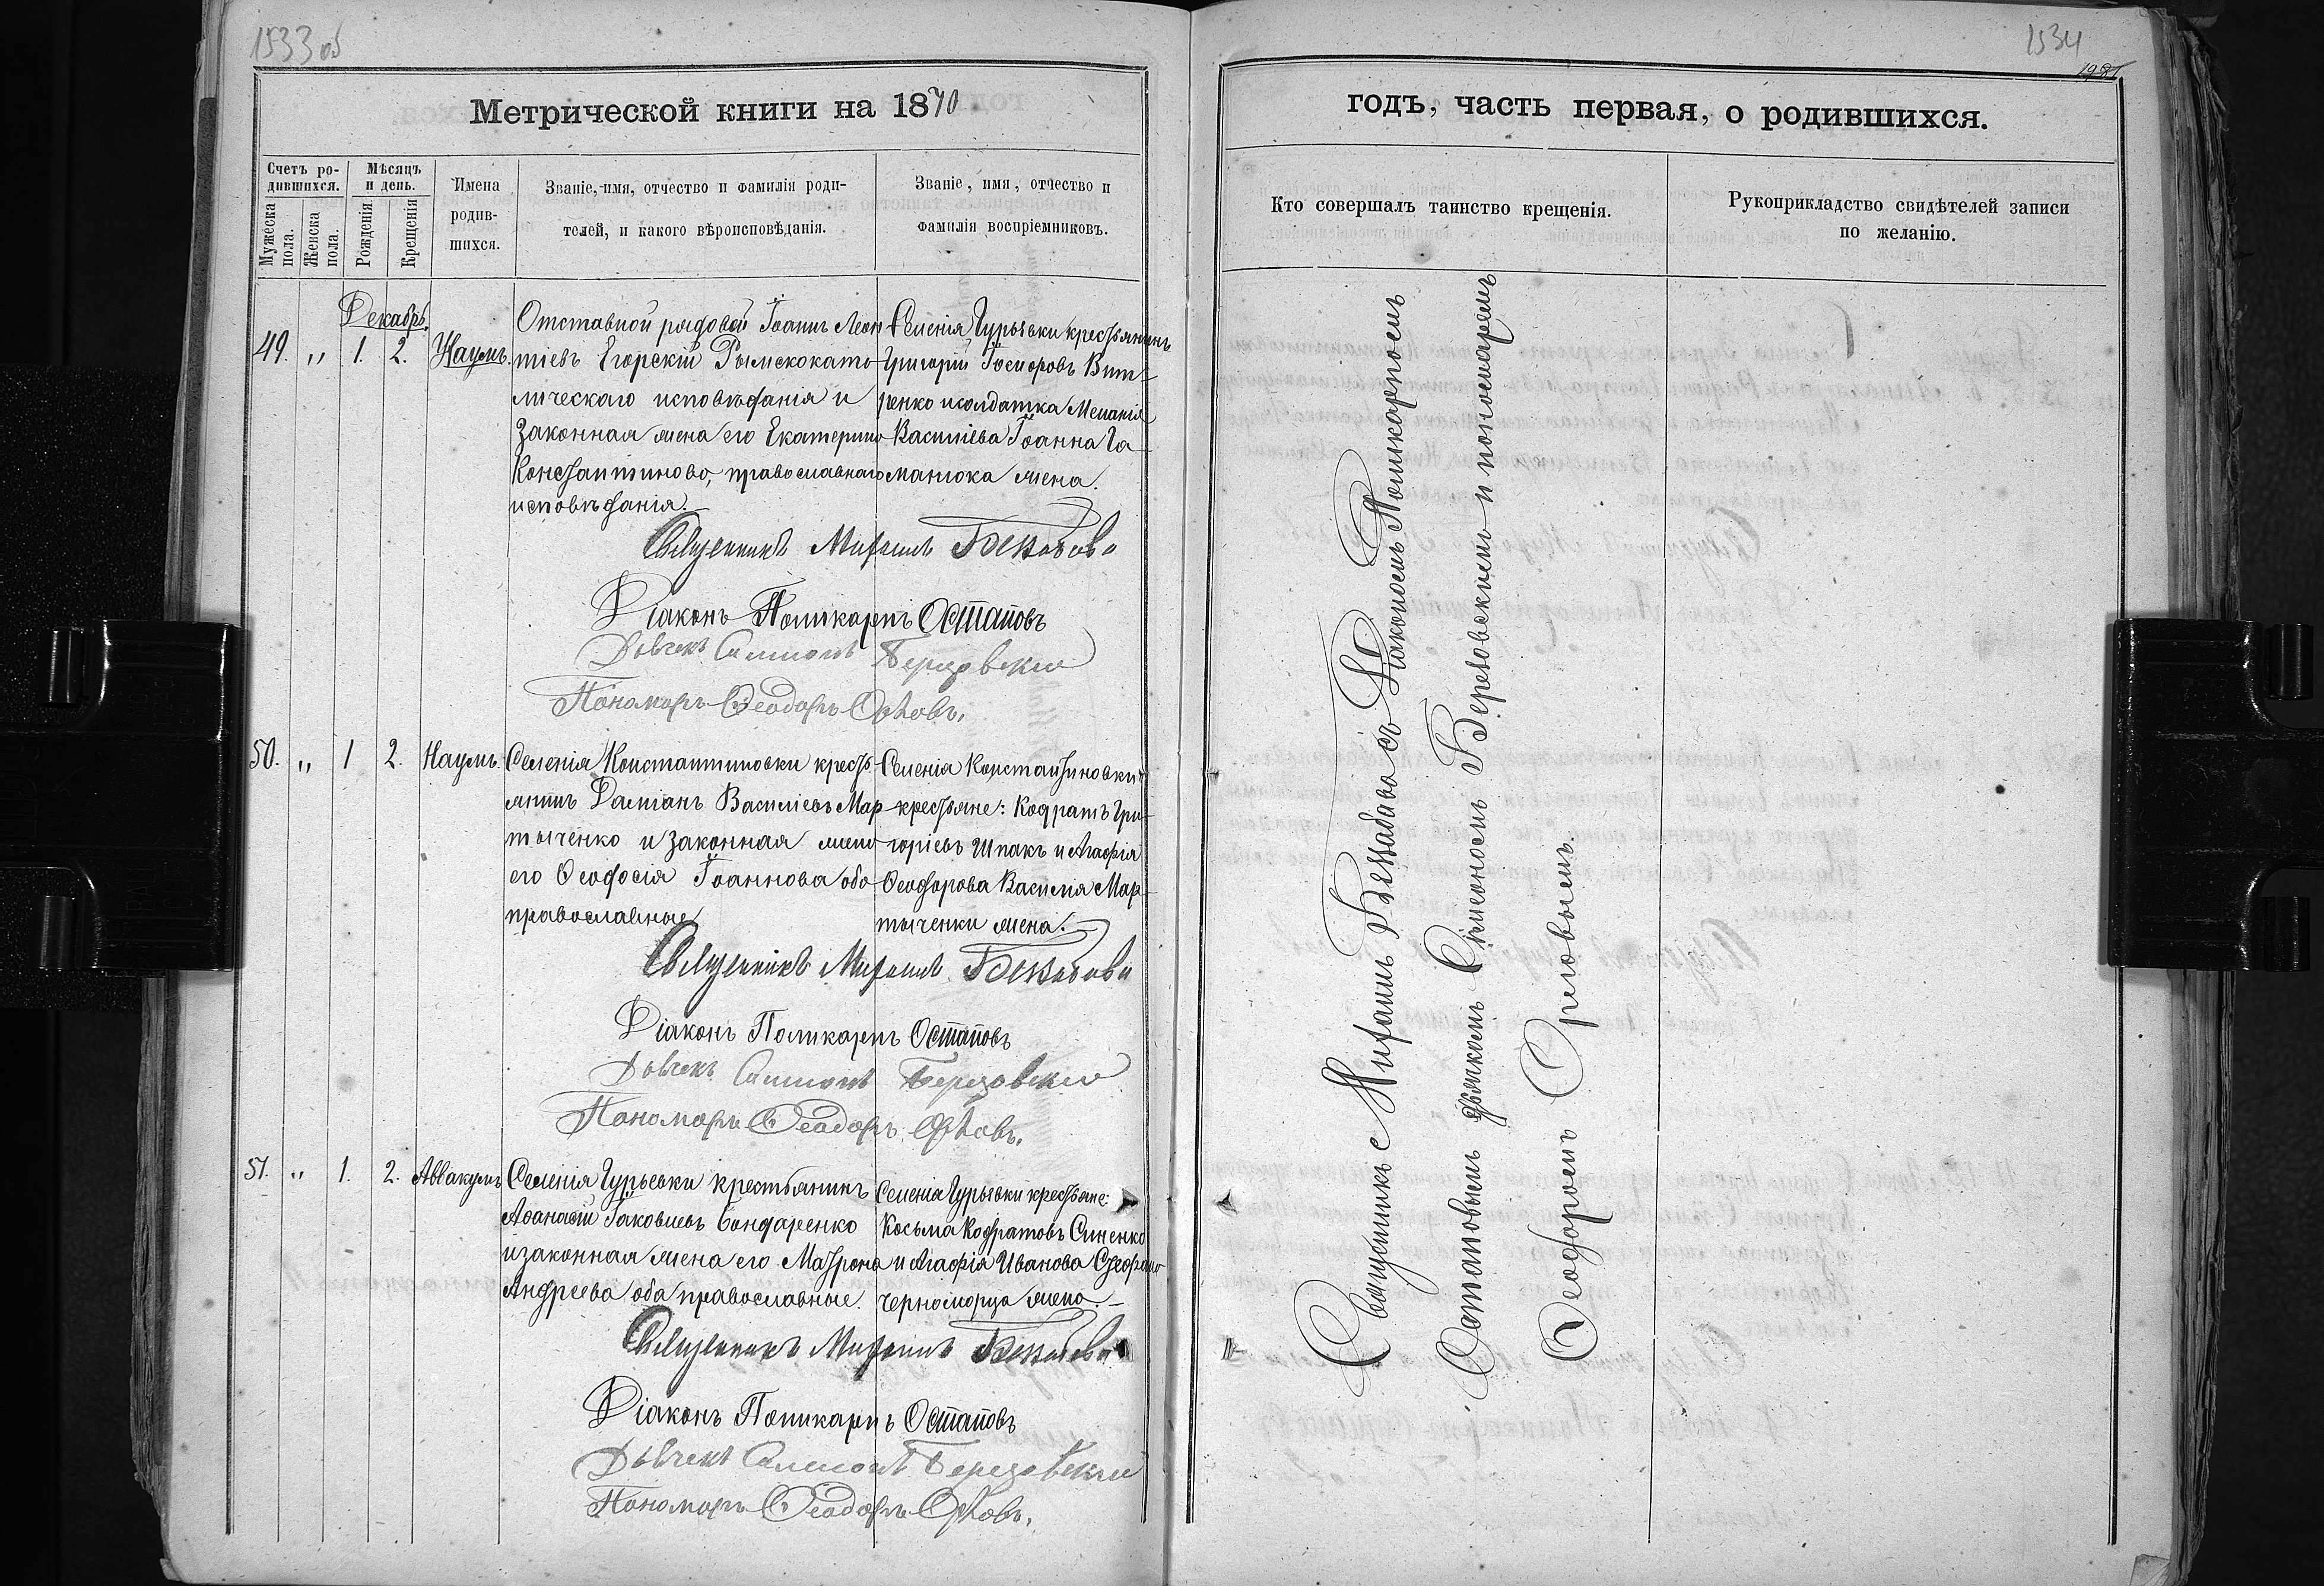 1533 об
Метрической книги на 1870
Счетъ ро-
дившихся.
Мѣсяцъ
и день.
Мужеска
пола.
Женска
пола.
Рожденія
Крещенія
Имена
родив-
шихся.
Званіе, имя, отчество и фамилія роди-
телей, и какого вѣроисповѣданія.
Званіе, имя, отчество и
фамилія воспріемниковъ.
Декабрь.
49. „ 1. 2. Наумъ.
Отставной рядовой Іоаннъ Леон
тіевъ Егорскій Рымскокато-
лическаго исповѣданія и
законная жена его Екатерина
Константинова, православнаго
исповѣданія.
Селенія Гурьевки крестьянинъ
Григорій
и солдатка Меланія
Василіева Іоанна Га-
манюка жена.
Священникъ Михаилъ
Діаконъ Поликарпъ Остаповъ
Дьячекъ Симеонъ Березовскій
Пономарь Ѳеодоръ Орловъ.
50. „ 1 2. Наумъ.
Селенія Константиновки кресть-
янинъ Даміанъ Василіевъ Мар-
тыченко и законная жена
его Ѳеодосія Іоаннова оба
православные
Селенія Константиновки
крестьяне: Кодратъ Гри-
горіевъ Шпакъ и Агафія
Ѳеодорова Василія Мар-
тыченки жена.
Священникъ Михаилъ
Діаконъ Поликарпъ Остаповъ
Дьячекъ Симеонъ Березовскій
Пономарь Ѳеодоръ Орловъ.
51. „ 1. 2. Аввакумъ
Селенія Гурьевки крестьянинъ
Аѳанасій Іаковлевъ Бондаренко
и законная жена его Матрона
Андреева оба православные.
Селенія Гурьевки крестьяне:
Косьма Кодратовъ Синенко
и Агафія Иванова
Черноморца жена.
Священникъ Михаилъ
Діаконъ Поликарпъ Остаповъ
Дьячекъ Симеонъ Березовскій
Пономарь Ѳеодоръ Орловъ.
1534
годъ, часть первая, о родившихся.
Кто совершалъ таинство крещенія.
Рукоприкладство свидѣтелей записи
по желанію.
Священникъ Михаилъ съ Діакономъ Поликарпомъ
Остаповымъ дьячкомъ Симеономъ Березовскимъ и пономаремъ
Ѳеодоромъ Орловымъ.